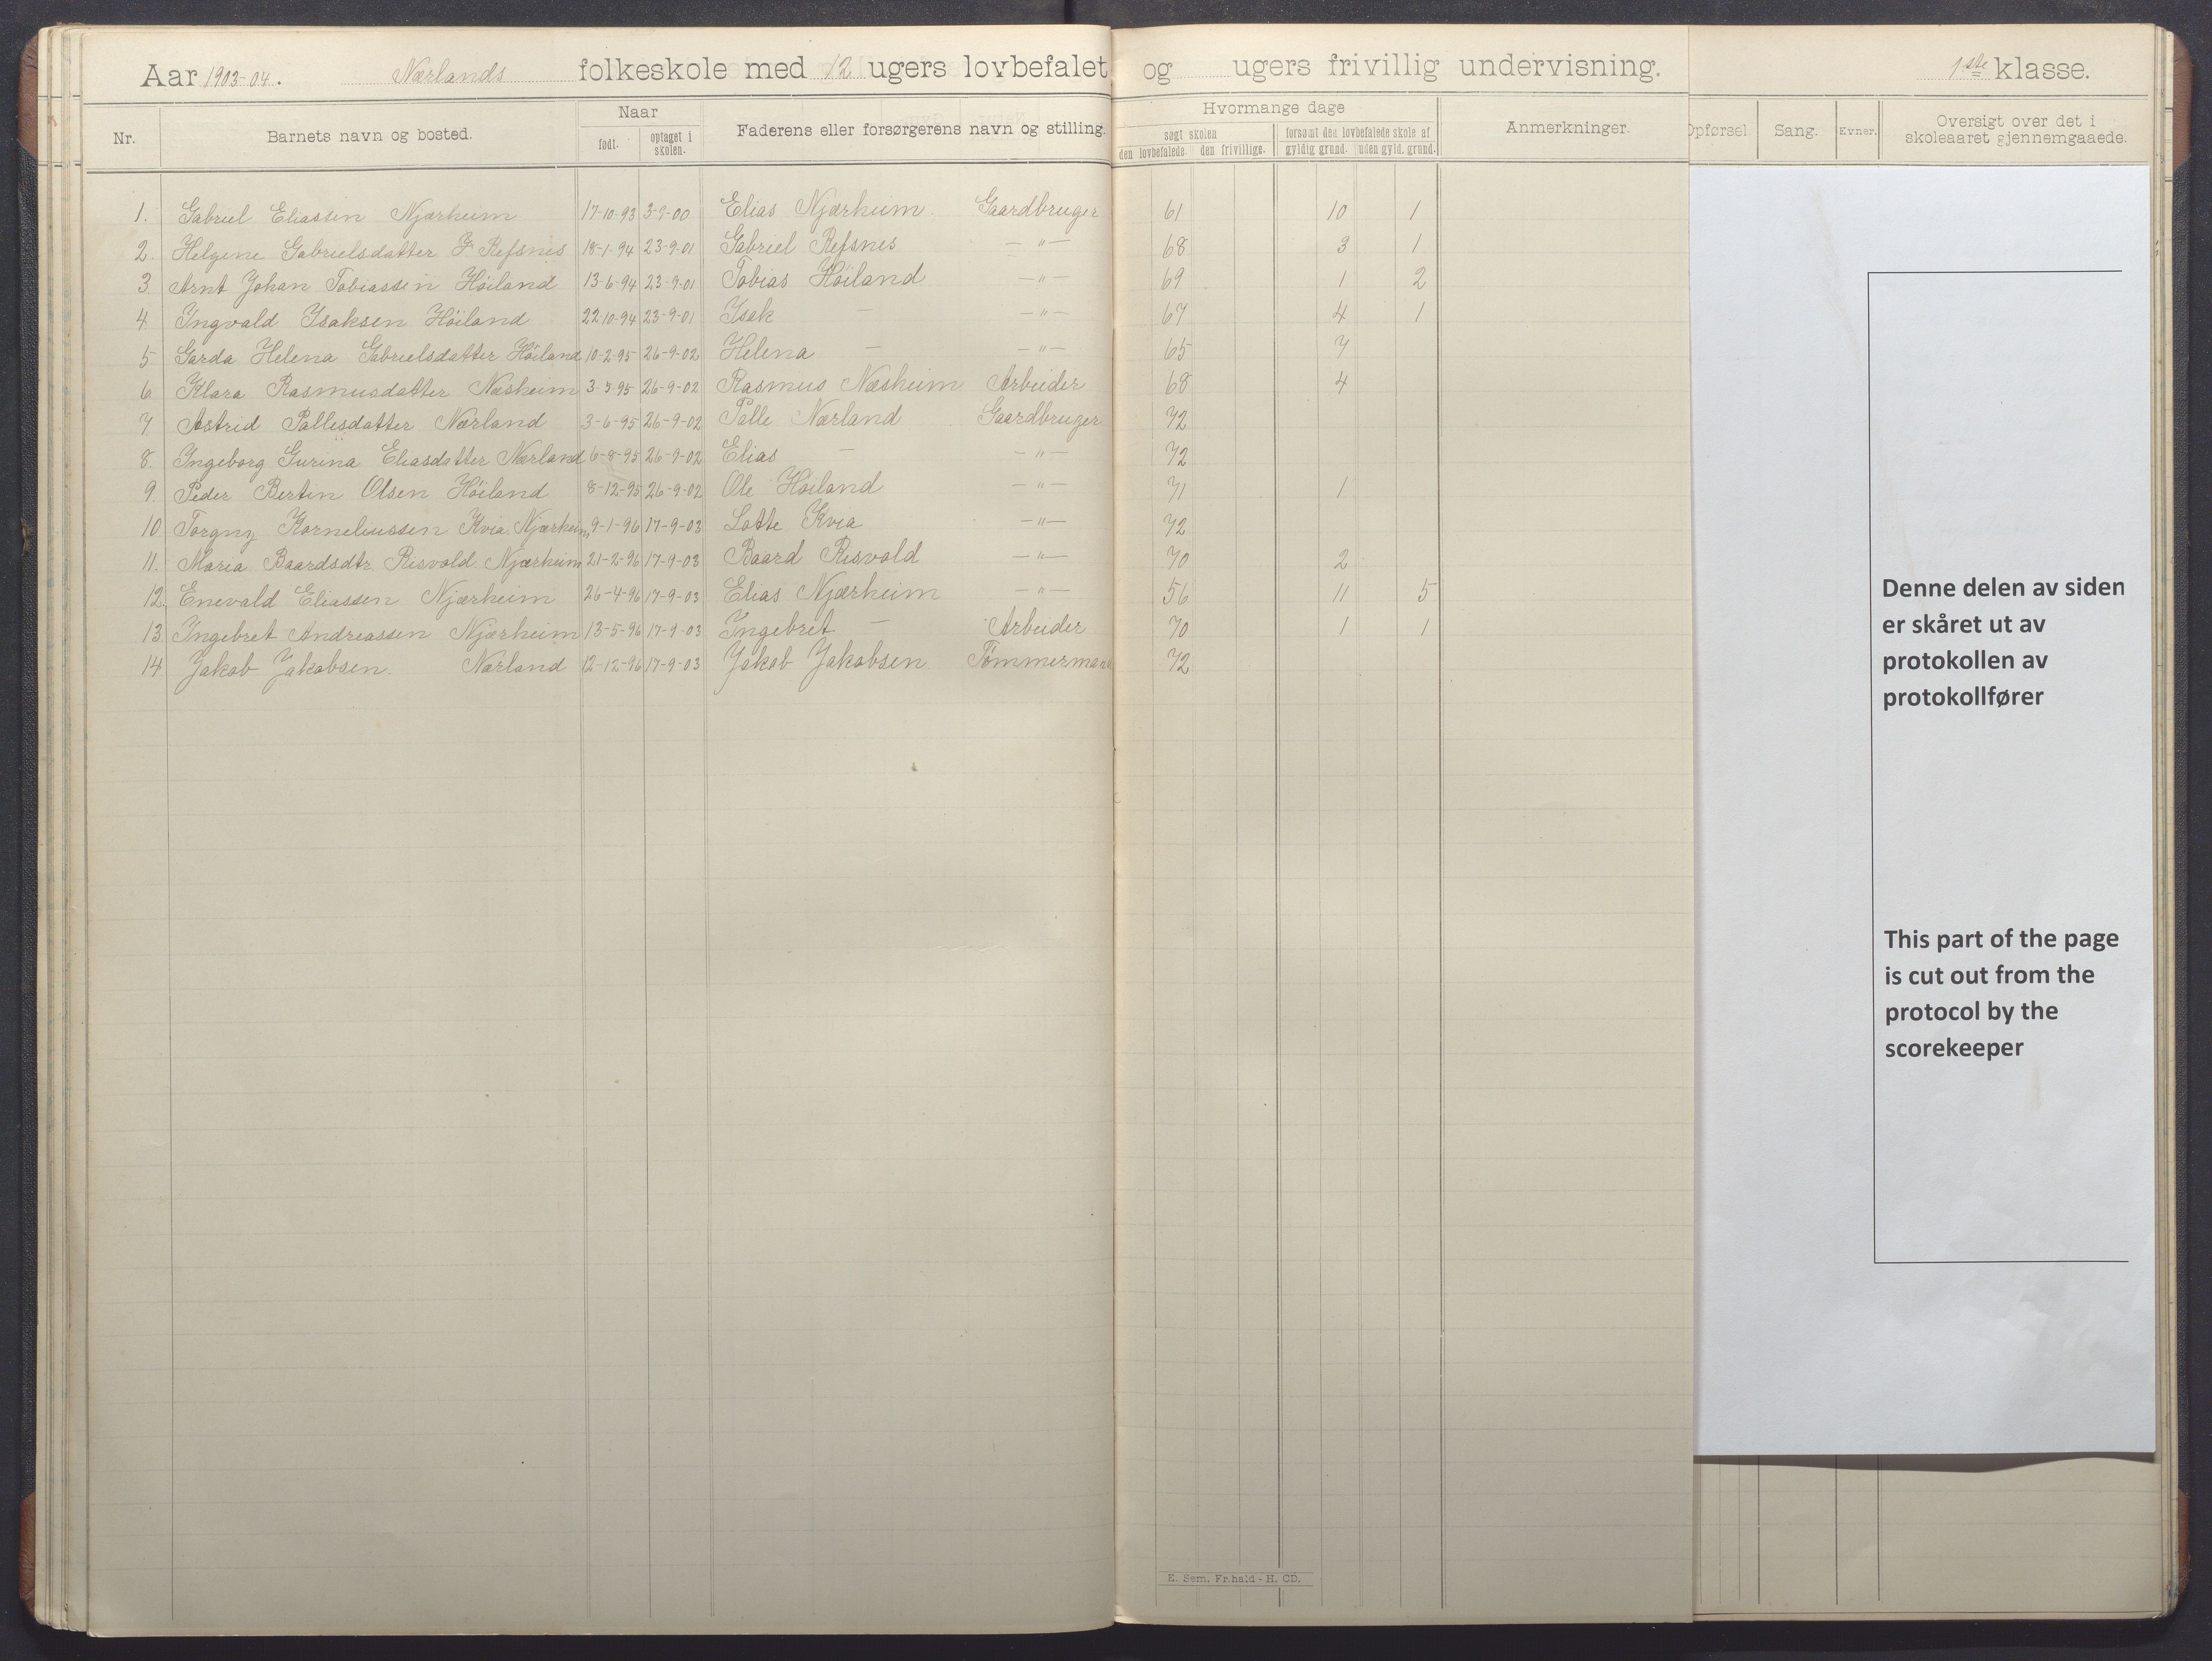 Aar 1903-04. Nærlands folkeskole med 12 ugers lovbefalet og ugers frivillig undervisning. 1ste klasse.
Nr. Barnets navn og bosted. Naar Faderens eller forsørgerens navn og stilling. Hvormange dage Anmerkninger. Opførsel Sang. Evner. Oversigt over det i skoleaaret gjennemgaaede.
født. optaget i skolen. søgt skolen forsømt den lovbefalede skole af
den lovbefalede. den frivillige. gyldig grund. uden gyld. grund.
1. Gabriel Eliassen Njærheim 17-10-93 3-9-00 Elias Njærheim Gaardbruger 61 10 1
2. Helgene Gabrielsdatter Refsnes 18-1-94 23-9-01 Gabriel Refsnes — " — 68 3 1
3 Arnt Johan Tobiassen Höiland 13-6-94 23-9-01 Tobias Höiland — " — 69 1 2
4 Ingvald Isaksen Höiland 22 10-94 23-9-01 Isak — — " — 67 4 1
5 Garda Helena Gabrielsdatter Höiland 10-2-95 26-9-02 Helena — — " — 65 7
6 Klara Rasmusdatter Næsheim 3-3-95 26-9-02 Rasmus Næsheim Arbeider 68 4
7. Astrid Pallesdatter Nærland 3-6-95 26-9-02 Palle Nærland Gaardbruger 72
8. Ingeborg Gurina Eliasdatter Nærland 6-8-95 26-9-02 Elias — — " — 72
9. Peder Bertin Olsen Höiland 8-12-95 26-9-02 Ole Höiland — " — 71 1
10 Torgny Korneliussen Kvia Njærheim 9-1-96 17-9-03 Lotte Kvia — " — 72
11. Maria Baardsdtr. Risvold. Njærheim 21-2-96 17-9-03 Baard Risvold — " — 70 2
12. Enevald Eliassen Njærheim 26-4-96 17-9-03 Elias Njærheim — " — 56 11 5
13 Ingebret Andreassen Njærheim 13-5-96 17-9-03 Ingebret — Arbeider 70 1 1
14 Jakob Jakobsen. Nærland 12-12-96 17-9-03 Jakob Jakobsen Tömmermand 72
Denne delen av siden
er skåret ut av
protokollen av
protokollfører
This part of the page
is cut out from the
protocol by the
scorekeeper
E. Sem. Fr.hald - H. CD.